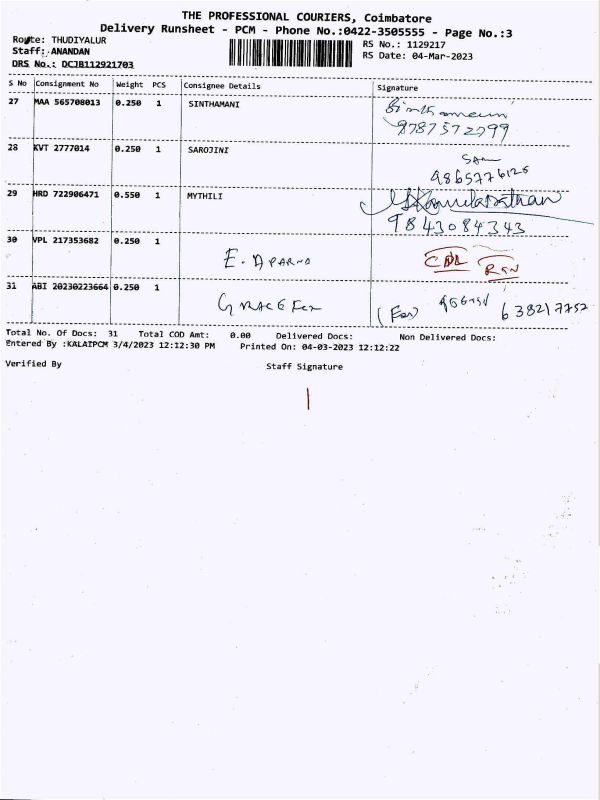 THE PROFESSIONAL COURIERS, Coimbatore
Delivery Runsheet - PCM - Phone No.:0422-3505555 - Page No.:3
Route: THUDIYALUR
RS No.: 1129217
Staff: ANANDAN
RS Date: 04-Mar-2023
DRS No.: DCJB112921703
S No Consignment No Weight PCS Consignee Details Signature
27 MAA 565708013 0.250 1 SINTHAMANI
9787572799
28 KVT 2777014 0.250 1 SAROJINI
9865776126
29 HRD 722906471 0.550 1 MYTHILI
9843084343
30 VPL 217353682 0.250 1 E. APARNA
31 ABI 20230223664 0.250 1
Total No. Of Docs: 31 Total COD Amt: 0.00 Delivered Docs: Non Delivered Docs:
Entered By :KALAIPCM 3/4/2023 12:12:30 PM Printed On: 04-03-2023 12:12:22
Verified By Staff Signature